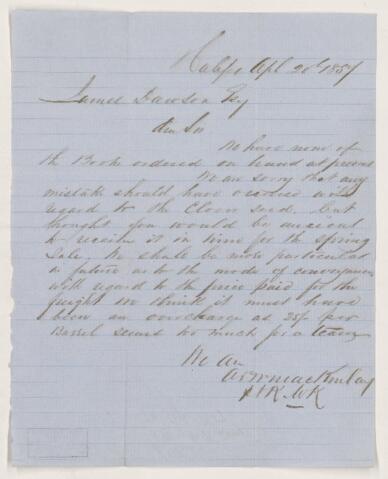 Halifx Apl 20th 1857
James Dawson Esq
Dear Sir
We have none of
the Books ordered on hand at present
We are sorry that any
mistake should have occurred with
regard to the Clover seed. but
thought you would be anxious
to receive it in time for the Spring
Sale. We shall be more particular
in future as to the mode of conveyance
with regard to the price paid for the
freight we think it must have
been an overcharge as 25/ per
Barrel seems too much for a
We are
A & W MacKinlay